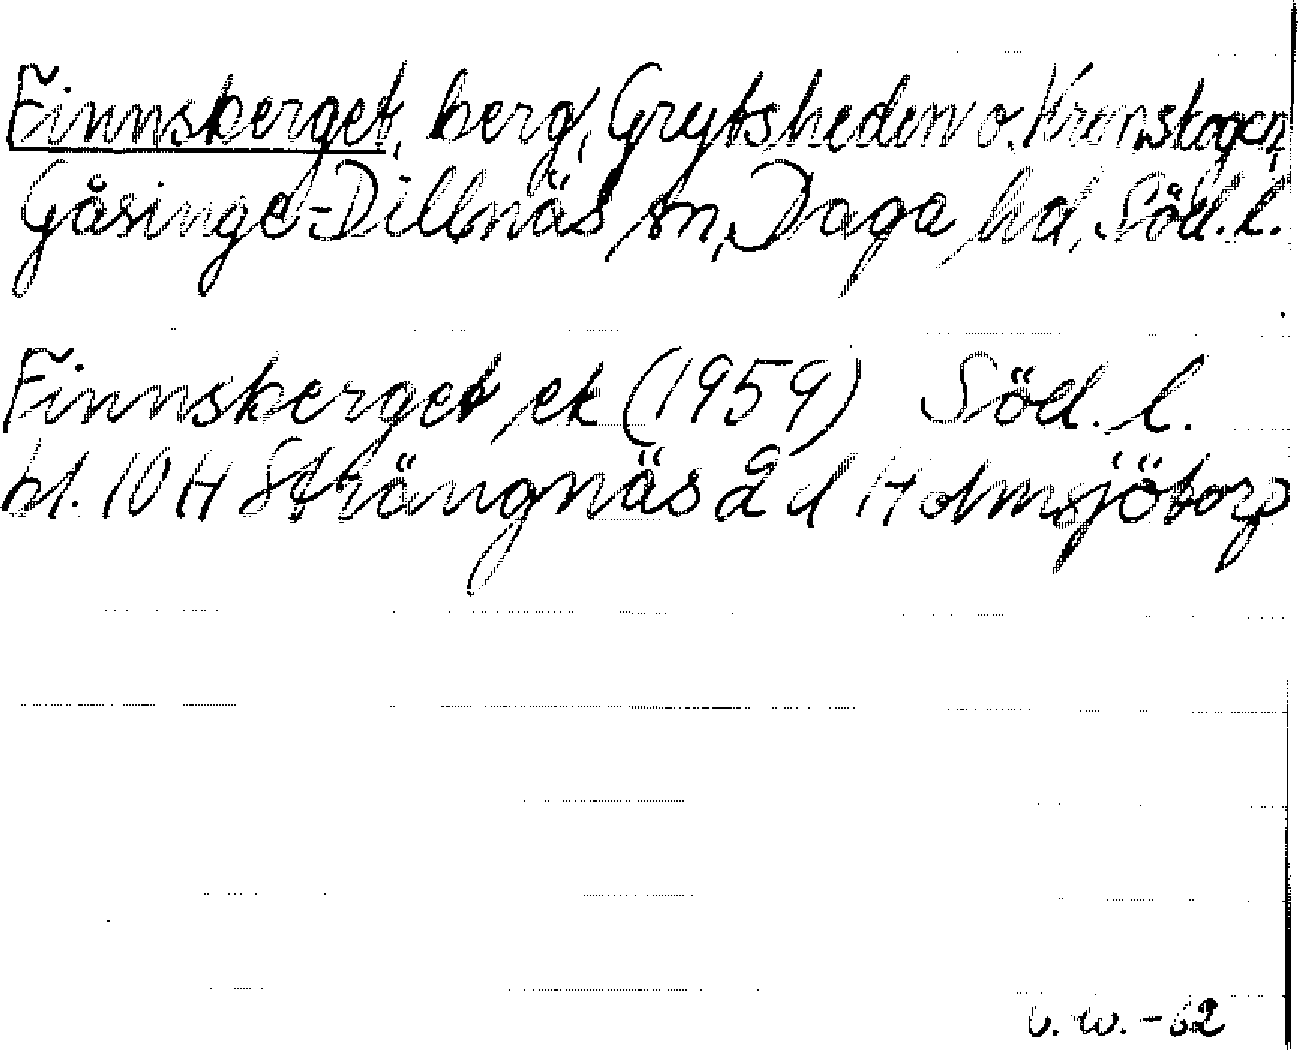 Finnsberget, berg, Grytsheden o. Kronskogen,
Gåsinge-Dillnäs sn, Daga hd, Söd. l.
Finnsberget ek (1959) Söd. l.
bl. 10 H Strängnäs 2 d Holmsjötorp
b. w. - 62